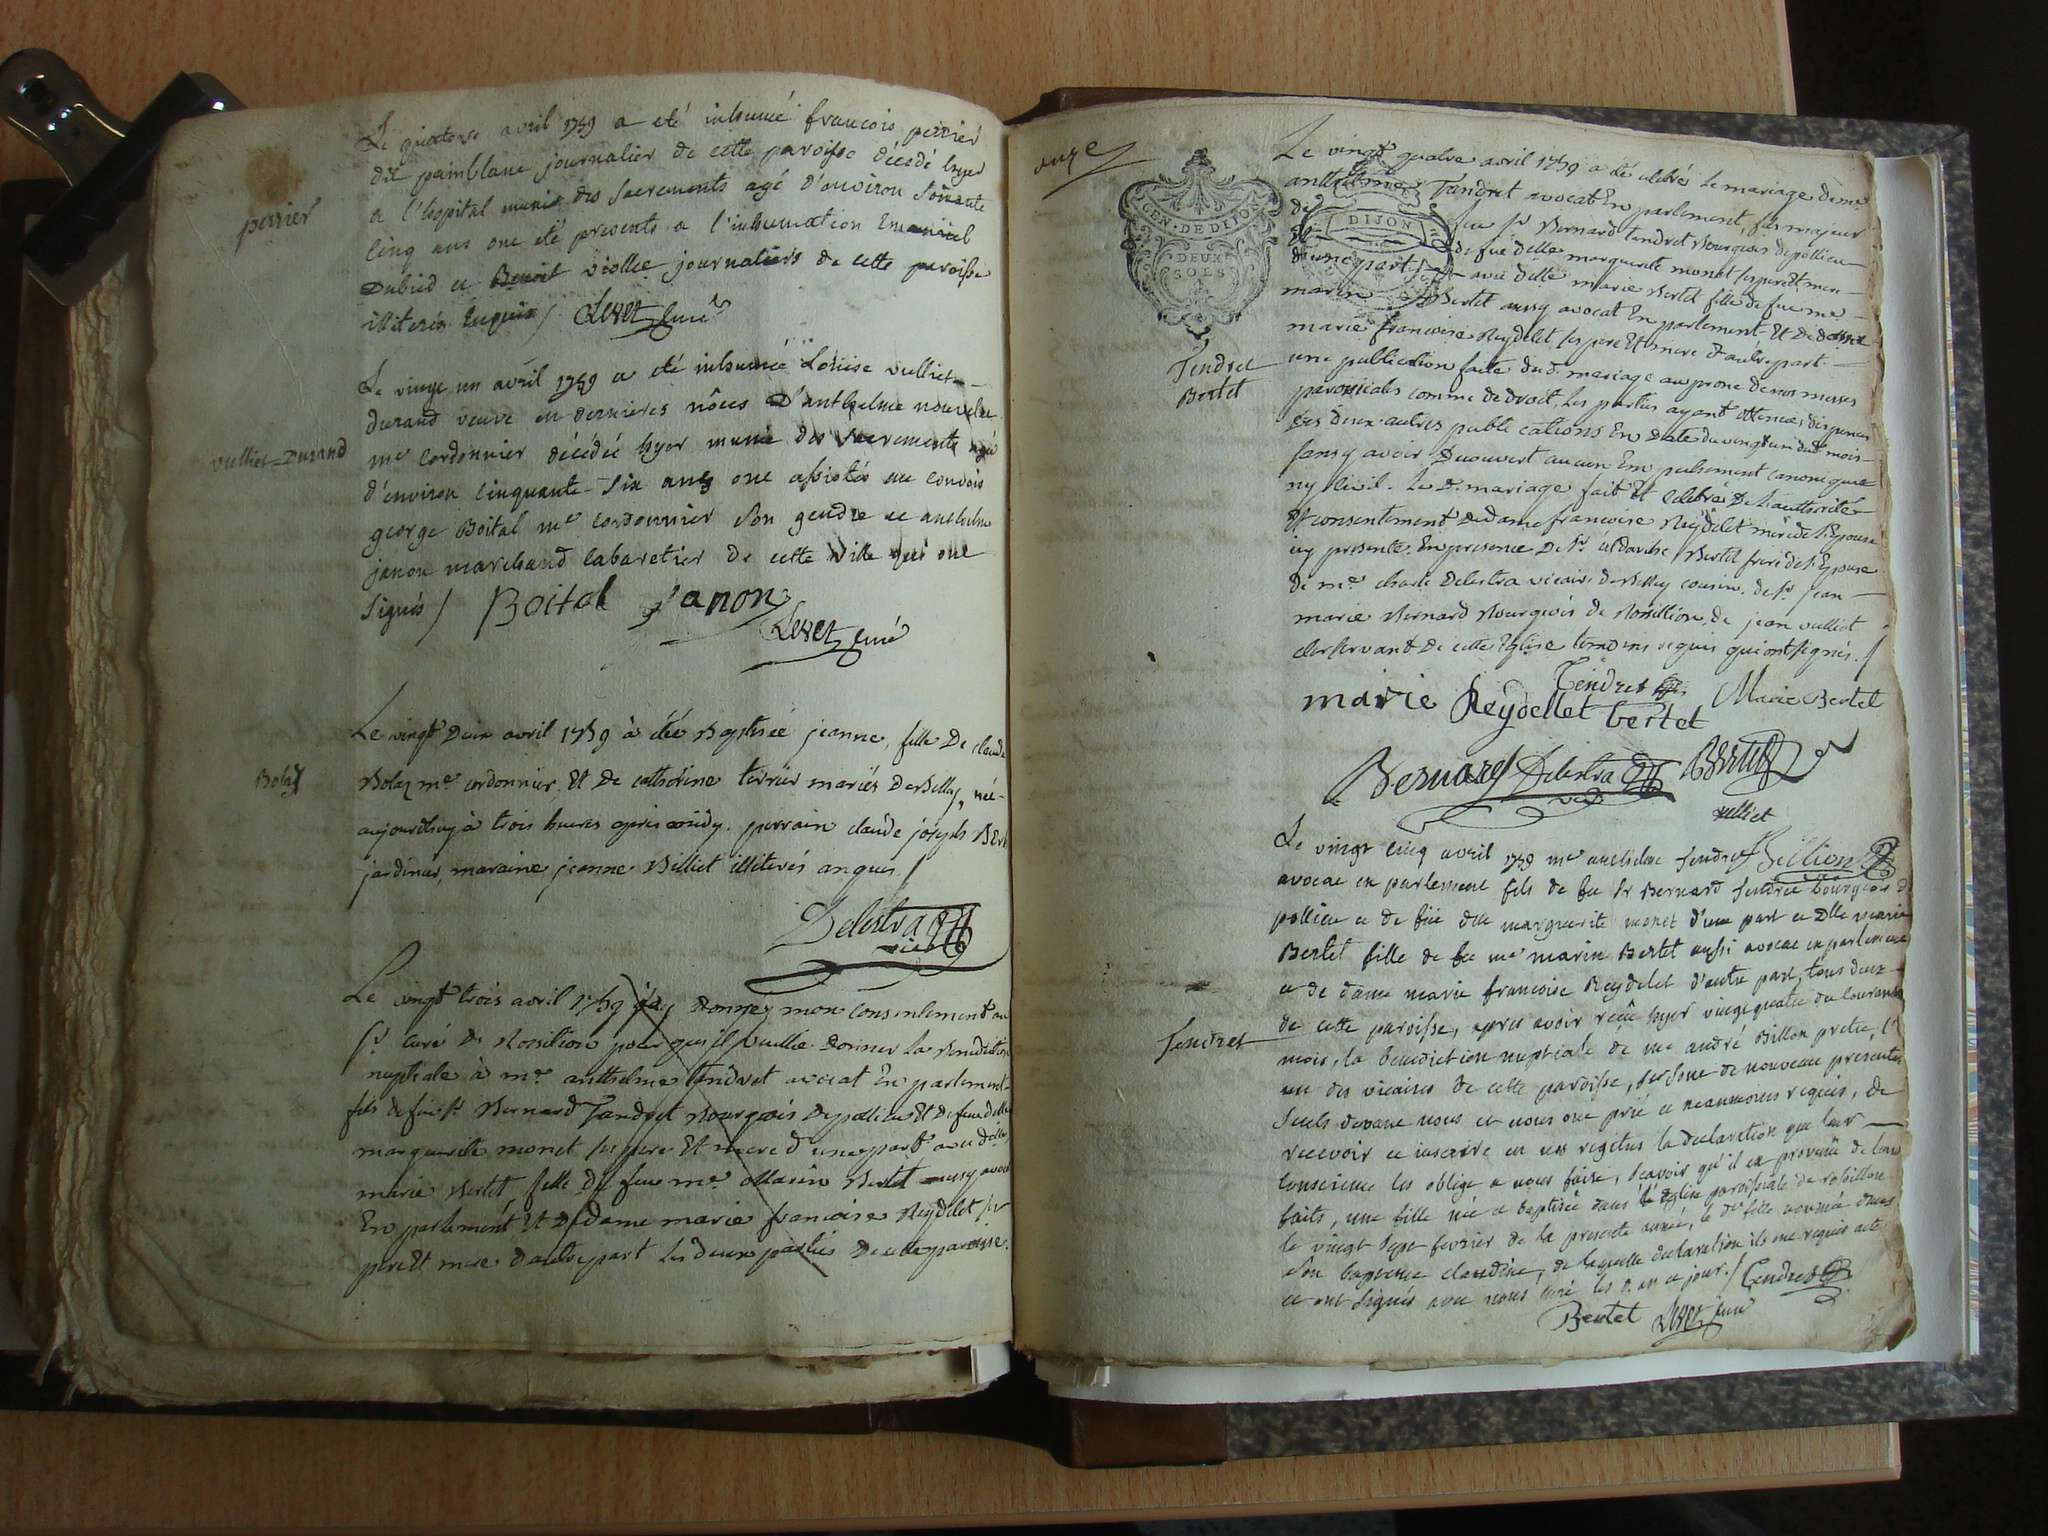 Le quatorze avril 1759 a eté inhumé francois perrier
dit painblanc journalier de cette paroisse décedé hyer
a l'hopital munis des sacrements agé d'environ soixante
cinq ans ont eté presents a l'inhumation
Dubied et Benoit viollet journaliers de cette paroisse
illiterés enquis / Levet curé
perrier
Le vingt un avril 1759 a eté inhumée Louise vulliet
durand veuve en dernieres nôces D'anthelme
me cordonnier décédée hyer munie des sacrements agée
d'environ cinquante six ans ont assistés au convois
george Boital me cordonnier son gendre et anthelme
janon marchand cabaretier de cette ville qui ont
signés / Boital janon
Levet curé
vulliet Durand
Le vingt deux avril 1759 à été Baptisée jeanne, fille De claude
Bolaz me cordonnier, Et de catherine terrier mariés De Belley, née
aujourdhuy à trois heures apres midy. parrain claude joseph
jardinier, maraine jeanne Billiet illiterés enquis /
Bolaz
Delestra
vic
Le vingt trois avril 1759 j'ay Donney mon consentement au
sr curé de Rossilion pour qu'il veuille donner La Benediction
nuptiale à me anthelme tendret avocat En parlement
fils de feu sr Bernard Tendret Bourgeois de pollieu Et De feue delle
marguerite monet ses pere Et mere d'une part avec delle
marie Bertet, fille De feu me Marin Bertet aussy avocat
En parlement Et De dame marie francoise Reydelet ses
pere Et mere d'autre part Les deux parties De cette paroisse.
onze
GEN · DE DIJON
DEUX
SOLS
DIJON
Le vingt quatre avril 1759 a été celebré Le mariage de me
anthelme Tendret avocat En parlement, fils majeur
de feu sr Bernard tendret Bourgeois de pollieu
Et de fue delle marguerite monet ses pere Et mere
d'une part avec delle marie Bertet fille de feu me
marin Bertet aussy avocat En parlement Et De dame
marie francoise Reydelet ses pere Et mere d'autre part.
une publication faite dud. mariage au prone de nos messes
paroissiales comme de droit, Les parties ayant obtenues dispenses
des deux autres publications En Date du vingt un dud. mois
sans y avoir Decouvert aucun Empechement canonique
ny Civil. Le d. mariage fait Et celebré De L'authorité
Et consentement de dame francoise Reydelet mere de L'Epouse
icy presente. En presence De sr Bertet frere de L'Epouse
de me charle Delestra vicaire de Belley cousin, de sr jean
marie Bernard Bourgeois de Rossillion, de jean vulliet
clerc servant De cette Eglise temoins requis qui ont signés. /
Tendret
Bertet
Tendret Marie Bertet
marie Reydellet bertet
Bernard Delestra Bertet
vic
vulliet
Billion
Le vingt cinq avril 1759 me anthelme tendret
avocat en parlement fils de feu sr Bernard tendret bourgeois de
pollieu et de feue dlle marguerite monet d'une part et Dlle marie
Bertet fille de feu me marin Bertet aussi avocat en parlement
et de dame marie francoise Reydelet d'autre part, tous deux
de cette paroisse, apres avoir recue hyer vingt quatre du courant
mois, la benediction nuptiale de me andré Billon pretre, l'
un des vicaires de cette paroisse, se sont de nouveau presentés
seuls devant nous et nous ont prié et neanmoins requis, de
recevoir et inscrire en nos registres la declaration que leur
conscience les oblige a nous faire, scavoir qu'il est provenue de leurs
faits, une fille née et baptisée dans l'Eglise paroissiale de rossillon
le vingt sept fevrier de la presente année, la de fille nommée dans
son bapteme claudine, de laquelle declaration ils ont requis acte
et ont signés avec nous curé les d. an et jour. / Tendret
Bertet Levet curé
tendret